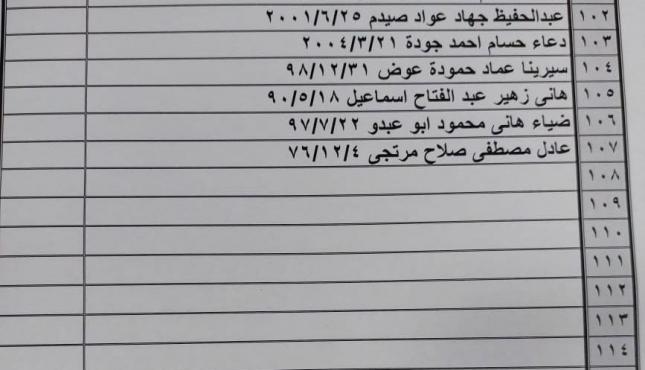 ١٠٢ عبدالحفيظ جهاد عواد صيدم ٢٠٠١/٦/٢٥
١٠٣ دعاء حسام احمد جودة ٢٠٠٤/٣/٢١
١٠٤ سيرينا عماد حمودة عوض ٩٨/١٢/٣١
١٠٥ هانى زهير عبد الفتاح اسماعيل ٩٠/٥/١٨
١٠٦ ضياء هانى محمود ابو عبدو ٩٧/٧/٢٢
١٠٧ عادل مصطفى صلاح مرتجى ٧٦/١٢/٤
١٠٨
١٠٩
١١٠
١١١
١١٢
١١٣
١١٤